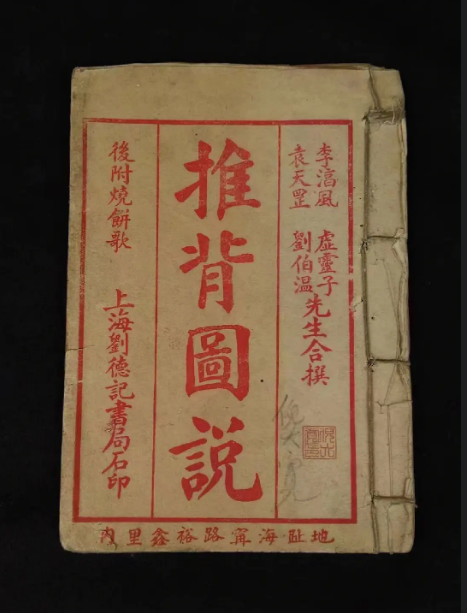 李淳風 虛靈子
袁天罡 劉伯温
先生合撰
推背圖說
後附燒餅歌
上海劉德記書局石印
地趾海甯路裕鑫里內